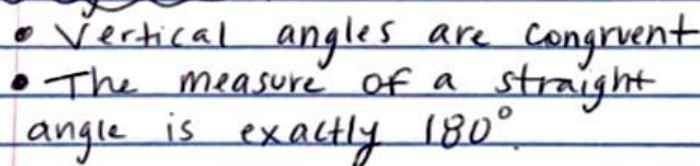 • Vertical angles are congruent
• The measure of a straight
angle is exactly 180°.